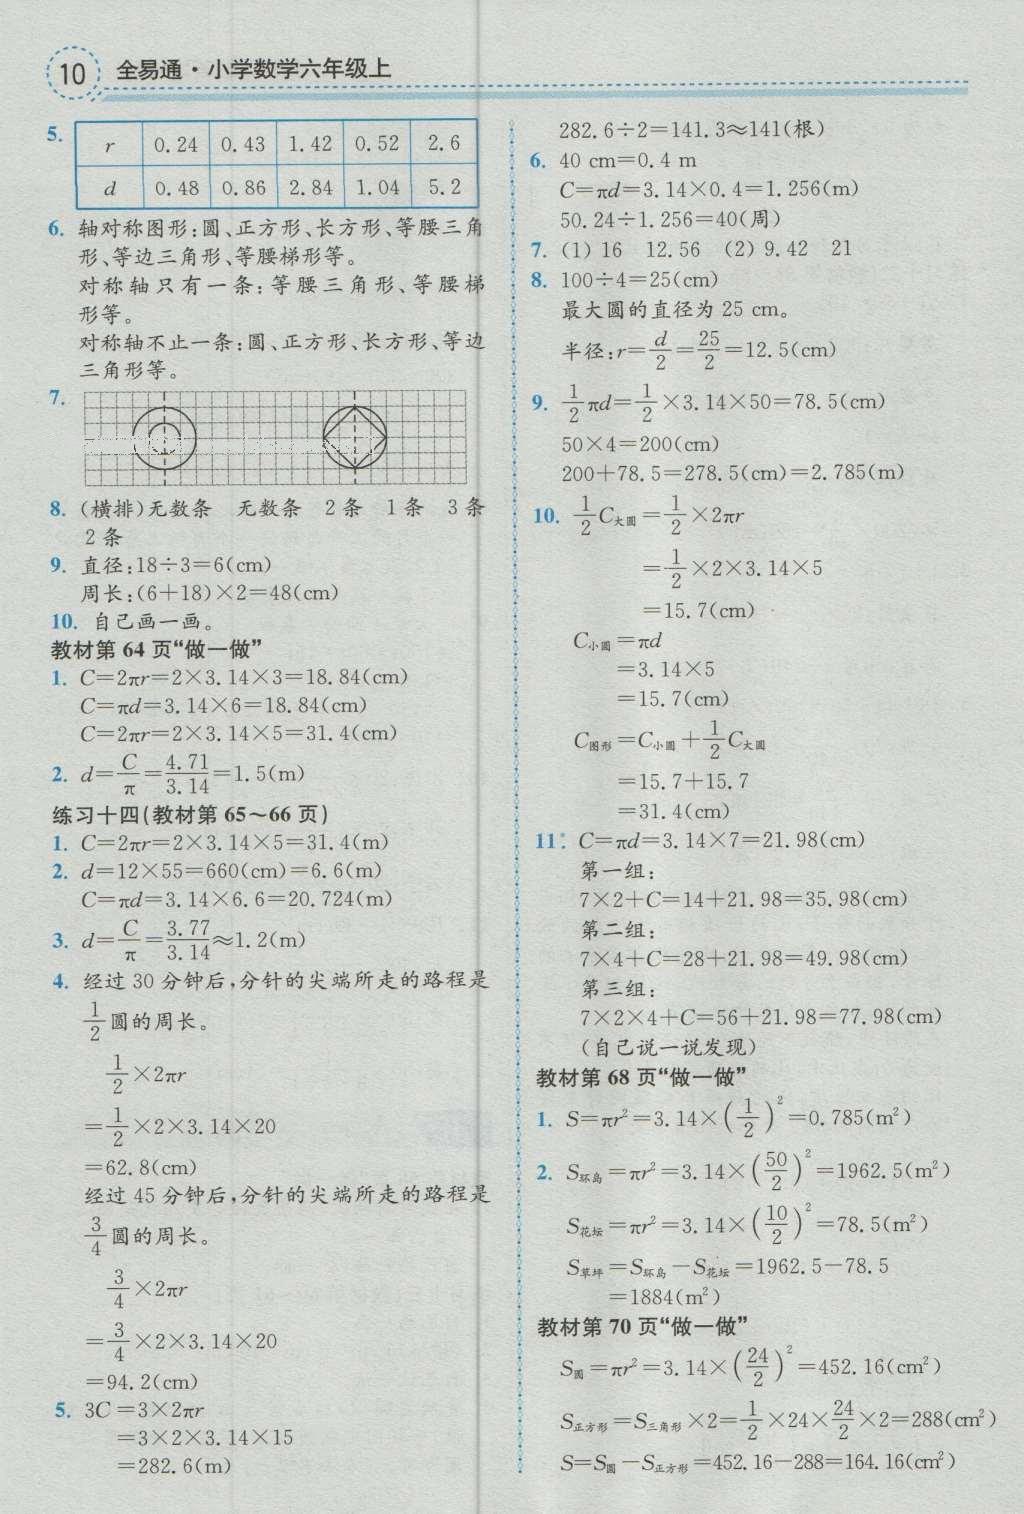 10 全易通·小学数学六年级上
5.
r 0.24 0.43 1.42 0.52 2.6
d 0.48 0.86 2.84 1.04 5.2
6. 轴对称图形:圆、正方形、长方形、等腰三角
形、等边三角形、等腰梯形等。
对称轴只有一条:等腰三角形、等腰梯
形等。
对称轴不止一条:圆、正方形、长方形、等边
三角形等。
7.
8. (横排)无数条 无数条 2条 1条 3条
2条
9. 直径:18÷3=6(cm)
周长:(6+18)×2=48(cm)
10. 自己画一画。
教材第64页“做一做”
1. C=2πr=2×3.14×3=18.84(cm)
C=πd=3.14×6=18.84(cm)
C=2πr=2×3.14×5=31.4(cm)
2. d=C/π=4.71/3.14=1.5(m)
练习十四(教材第65~66页)
1. C=2πr=2×3.14×5=31.4(m)
2. d=12×55=660(cm)=6.6(m)
C=πd=3.14×6.6=20.724(m)
3. d=C/π=3.77/3.14≈1.2(m)
4. 经过30分钟后,分针的尖端所走的路程是
1/2圆的周长。
1/2×2πr
=1/2×2×3.14×20
=62.8(cm)
经过45分钟后,分针的尖端所走的路程是
3/4圆的周长。
3/4×2πr
=3/4×2×3.14×20
=94.2(cm)
5. 3C=3×2πr
=3×2×3.14×15
=282.6(m)
282.6÷2=141.3≈141(根)
6. 40 cm=0.4 m
C=πd=3.14×0.4=1.256(m)
50.24÷1.256=40(周)
7. (1) 16 12.56 (2) 9.42 21
8. 100÷4=25(cm)
最大圆的直径为25 cm。
半径:r=d/2=25/2=12.5(cm)
9. 1/2πd=1/2×3.14×50=78.5(cm)
50×4=200(cm)
200+78.5=278.5(cm)=2.785(m)
10. 1/2C大圆=1/2×2πr
=1/2×2×3.14×5
=15.7(cm)
C小圆=πd
=3.14×5
=15.7(cm)
C图形=C小圆+1/2C大圆
=15.7+15.7
=31.4(cm)
11*. C=πd=3.14×7=21.98(cm)
第一组:
7×2+C=14+21.98=35.98(cm)
第二组:
7×4+C=28+21.98=49.98(cm)
第三组:
7×2×4+C=56+21.98=77.98(cm)
(自己说一说发现)
教材第68页“做一做”
1. S=πr²=3.14×(1/2)²=0.785(m²)
2. S环岛=πr²=3.14×(50/2)²=1962.5(m²)
S花坛=πr²=3.14×(10/2)²=78.5(m²)
S草坪=S环岛-S花坛=1962.5-78.5
=1884(m²)
教材第70页“做一做”
S圆=πr²=3.14×(24/2)²=452.16(cm²)
S正方形=S三角形×2=1/2×24×24/2×2=288(cm²)
S=S圆-S正方形=452.16-288=164.16(cm²)